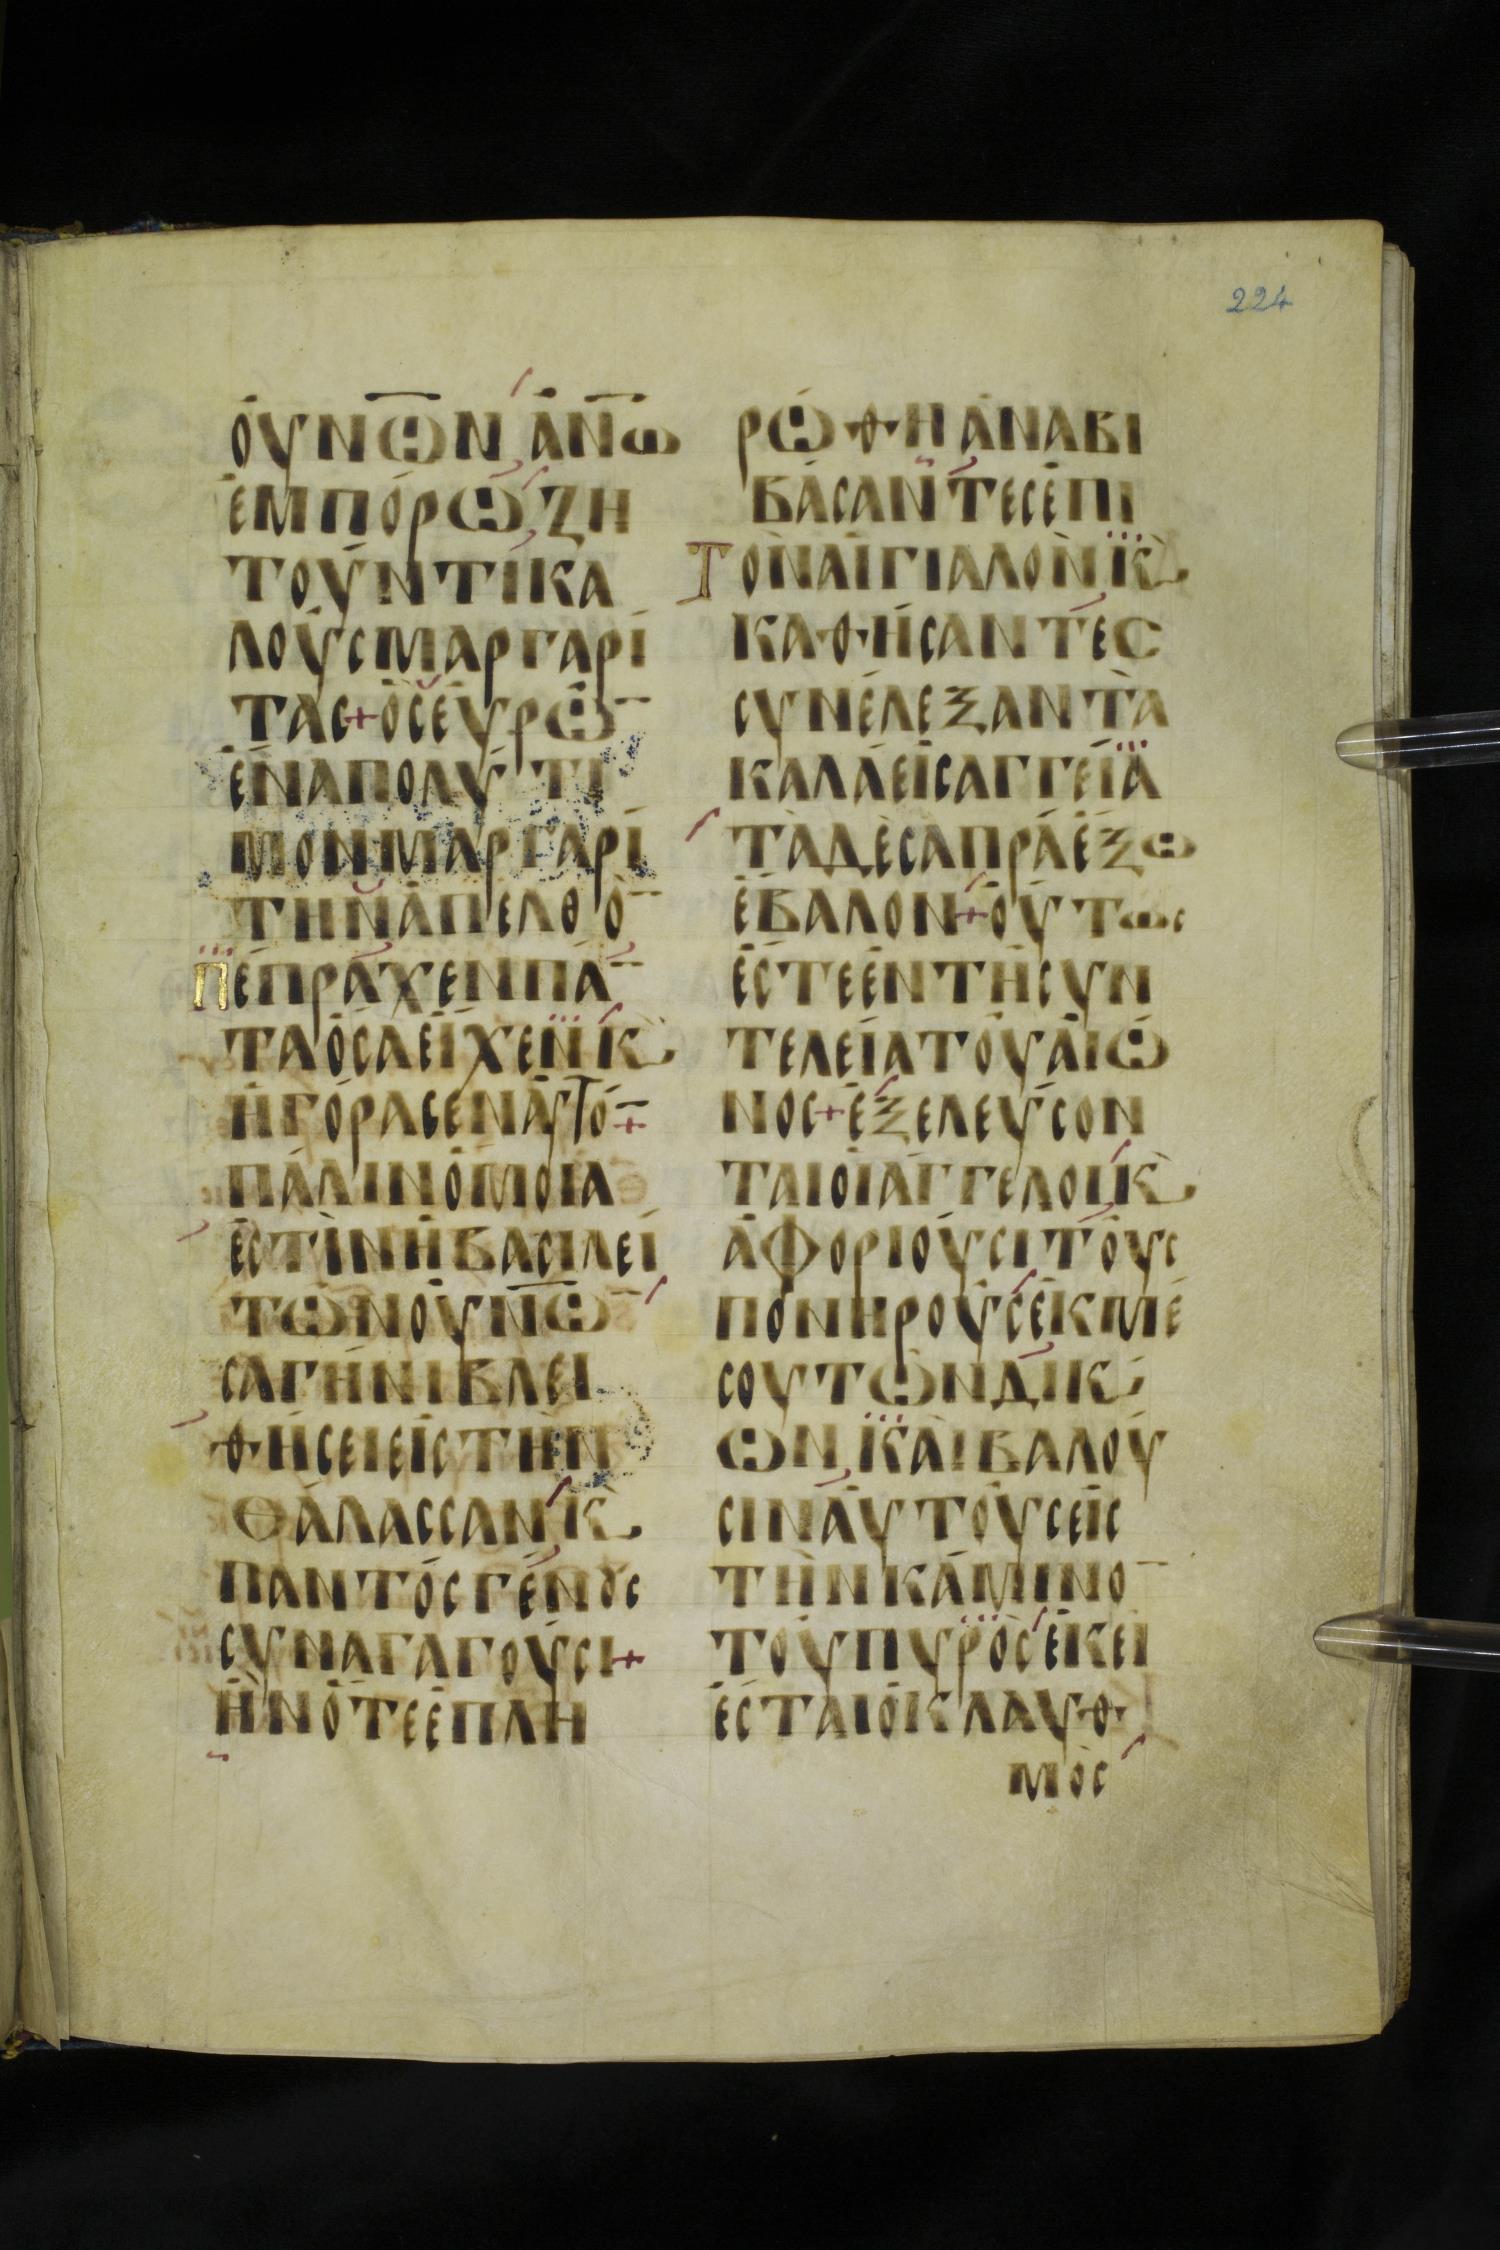 224
ΟΥΝΩ̅Ν ἈΝ̅Ω
ἘΜΠΌΡΩ ΖΗ
ΤΟΥ͂ΝΤΙ ΚΑ
ΛΟῪΣ ΜΑΡΓΑΡΊ
ΤΑΣ + ὋΣ ΕὙΡΩ̅
ἝΝΑ ΠΟΛΎΤΙ
ΜΟΝ ΜΑΡΓΑΡΊ
ΤΗΝ ἈΠΕΛΘΟ̅
ΠΈΠΡΑΧΕΝ ΠΆ̅
ΤΑ ὍΣΑ ΕἾΧΕΝ Κ̀
ἨΓΌΡΑΣΕΝ ΑΥΤΌ̅ +
ΠΆΛΙΝ ὉΜΟΊΑ
ἘΣΤῚΝ Ἡ ΒΑΣΙΛΕΊ
ΤΩ͂Ν ΟΥΝ̅Ω̅
ΣΑΓΉΝΙ ΒΛΕΙ
ΘΉΣΕΙ ΕἸΣ ΤῊΝ
ΘΆΛΑΣΣΑΝ Κ̀
ΠΑΝΤῸΣ ΓΈΝΟΥΣ
ΣΥΝΑΓΑΓΟΎΣΙ +
ἪΝ ὍΤΕ ἘΠΛΗ
ΡΏΘΗ ἈΝΑΒΙ
ΒΆΣΑΝΤΕΣ ἘΠΙ
ΤῸΝ ΑἸΓΙΑΛῸΝ Κ̀
ΚΑΘΉΣΑΝΤΕΣ
ΣΥΝΈΛΕΞΑΝ ΤᾺ
ΚΑΛᾺ ΕἸΣ ΑΓΓΕΊΑ
ΤᾺ ΔῈ ΣΑΠΡᾺ ἜΞΩ
ἜΒΑΛΟΝ + ΟὝΤΩΣ
ἜΣΤΕ ἘΝ ΤΗ͂ ΣΥΝ
ΤΕΛΕΊΑ ΤΟΥ͂ ΑἸΩ͂
ΝΟΣ + ἘΞΕΛΕΎΣΟΝ
ΤΑΙ ΟἹ ἈΓΓΕΛΟΙ Κ̀
ἈΦΟΡΙΟΥ͂ΣΙ ΤΟῪΣ
ΠΟΝΗΡΟῪΣ ἘΚ ΜΈ
ΣΟΥ ΤΩ͂Ν ΔΙΚ̀
ΩΝ ΚΑῚ ΒΑΛΟΥ͂
ΣΙΝ ΑΥΤΟῪΣ ΕἸΣ
ΤῊΝ ΚΆΜΙΝΟ̅
ΤΟΥ͂ ΠΥΡῸΣ ἘΚΕΙ͂
ἜΣΤΑΙ Ὁ ΚΛΑΥΘ
ΜῸΣ